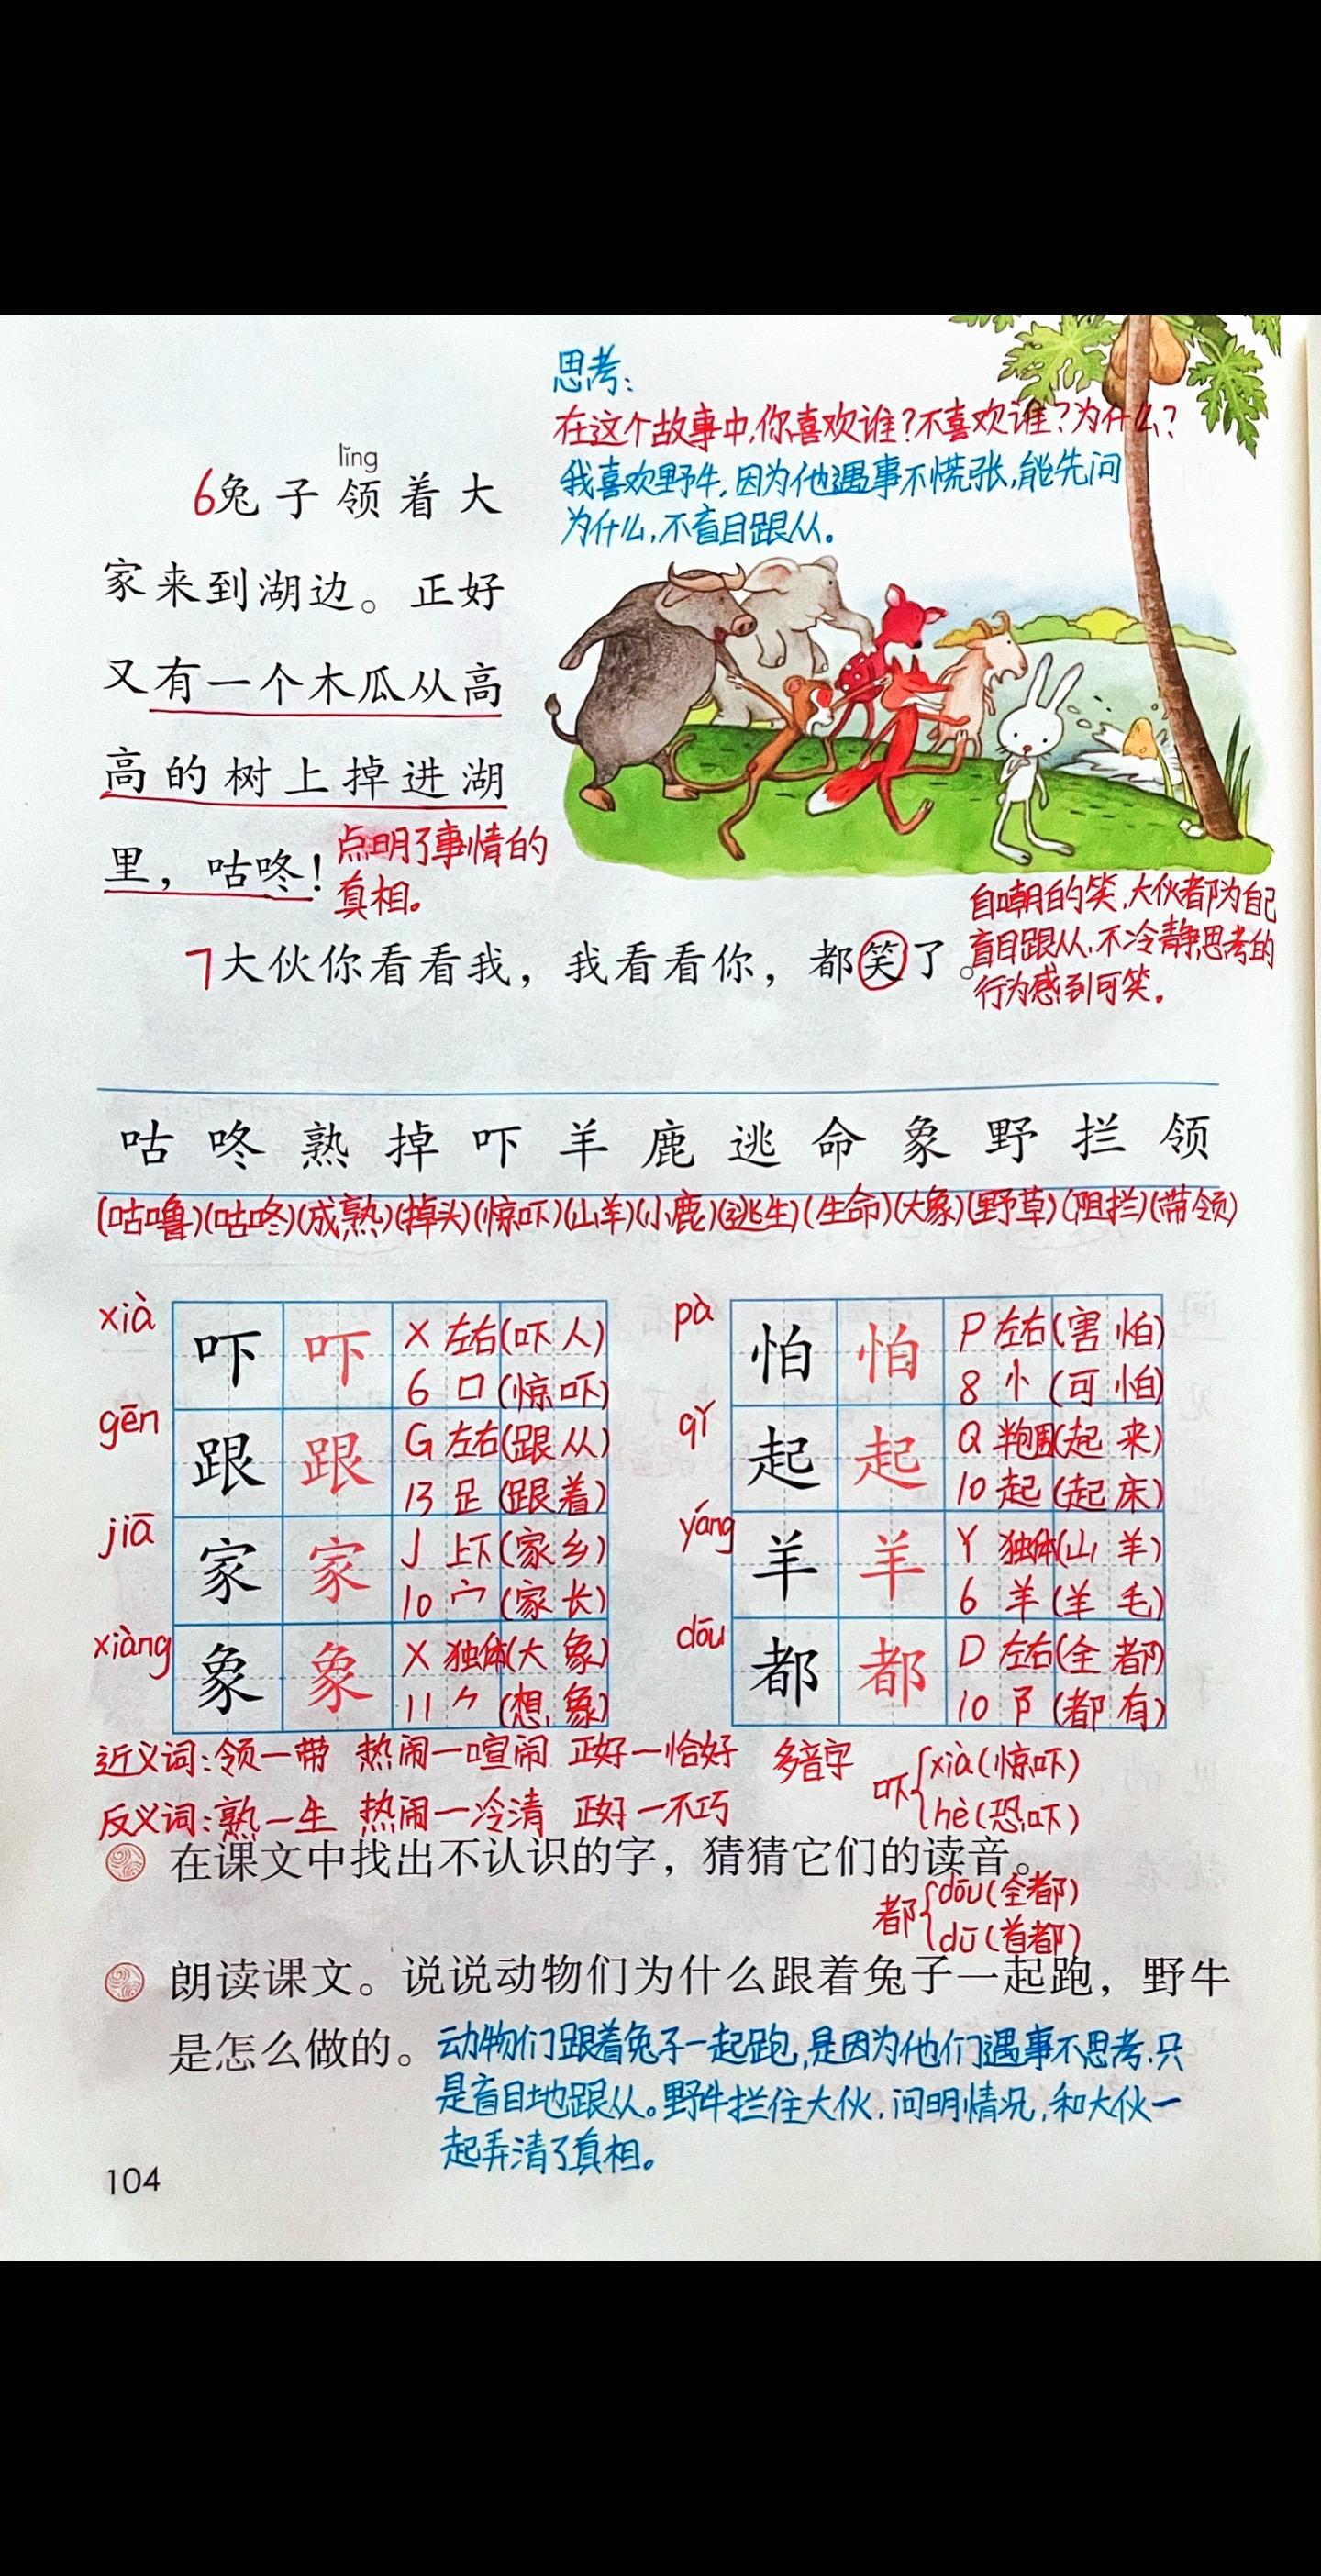 思考:
在这个故事中,你喜欢谁?不喜欢谁?为什么?
我喜欢野牛,因为他遇事不慌张,能先问
为什么,不盲目跟从。
lǐng
6兔子领着大
家来到湖边。正好
又有一个木瓜从高
高的树上掉进湖
里，咕咚！
点明了事情的
真相。
7大伙你看看我，我看看你，都笑了。
自嘲的笑,大伙都为自己
盲目跟从,不冷静思考的
行为感到可笑。
咕 咚 熟 掉 吓 羊 鹿 逃 命 象 野 拦 领
(咕噜)(咕咚)(成熟)(掉头)(惊吓)(山羊)(小鹿)(逃生)(生命)(大象)(野草)(阻拦)(带领)
xià 吓 吓 X 左右(吓人)
6 口 (惊吓)
gēn 跟 跟 G 左右(跟从)
13 足 (跟着)
jiā 家 家 J 上下(家乡)
10 宀 (家长)
xiàng 象 象 X 独体(大象)
11 ⺈ (想象)
pà 怕 怕 P 左右(害怕)
8 忄 (可怕)
qǐ 起 起 Q 半包围(起来)
10 起 (起床)
yáng 羊 羊 Y 独体(山羊)
6 羊 (羊毛)
dōu 都 都 D 左右(全都)
10 阝 (都有)
近义词:领—带 热闹—喧闹 正好—恰好
反义词:熟—生 热闹—冷清 正好—不巧
多音字
吓{xià(惊吓)
hè(恐吓)
在课文中找出不认识的字，猜猜它们的读音。
都{dōu(全都)
dū(首都)
朗读课文。说说动物们为什么跟着兔子一起跑，野牛
是怎么做的。
动物们跟着兔子一起跑,是因为他们遇事不思考,只
是盲目地跟从。野牛拦住大伙,问明情况,和大伙一
起弄清了真相。
104